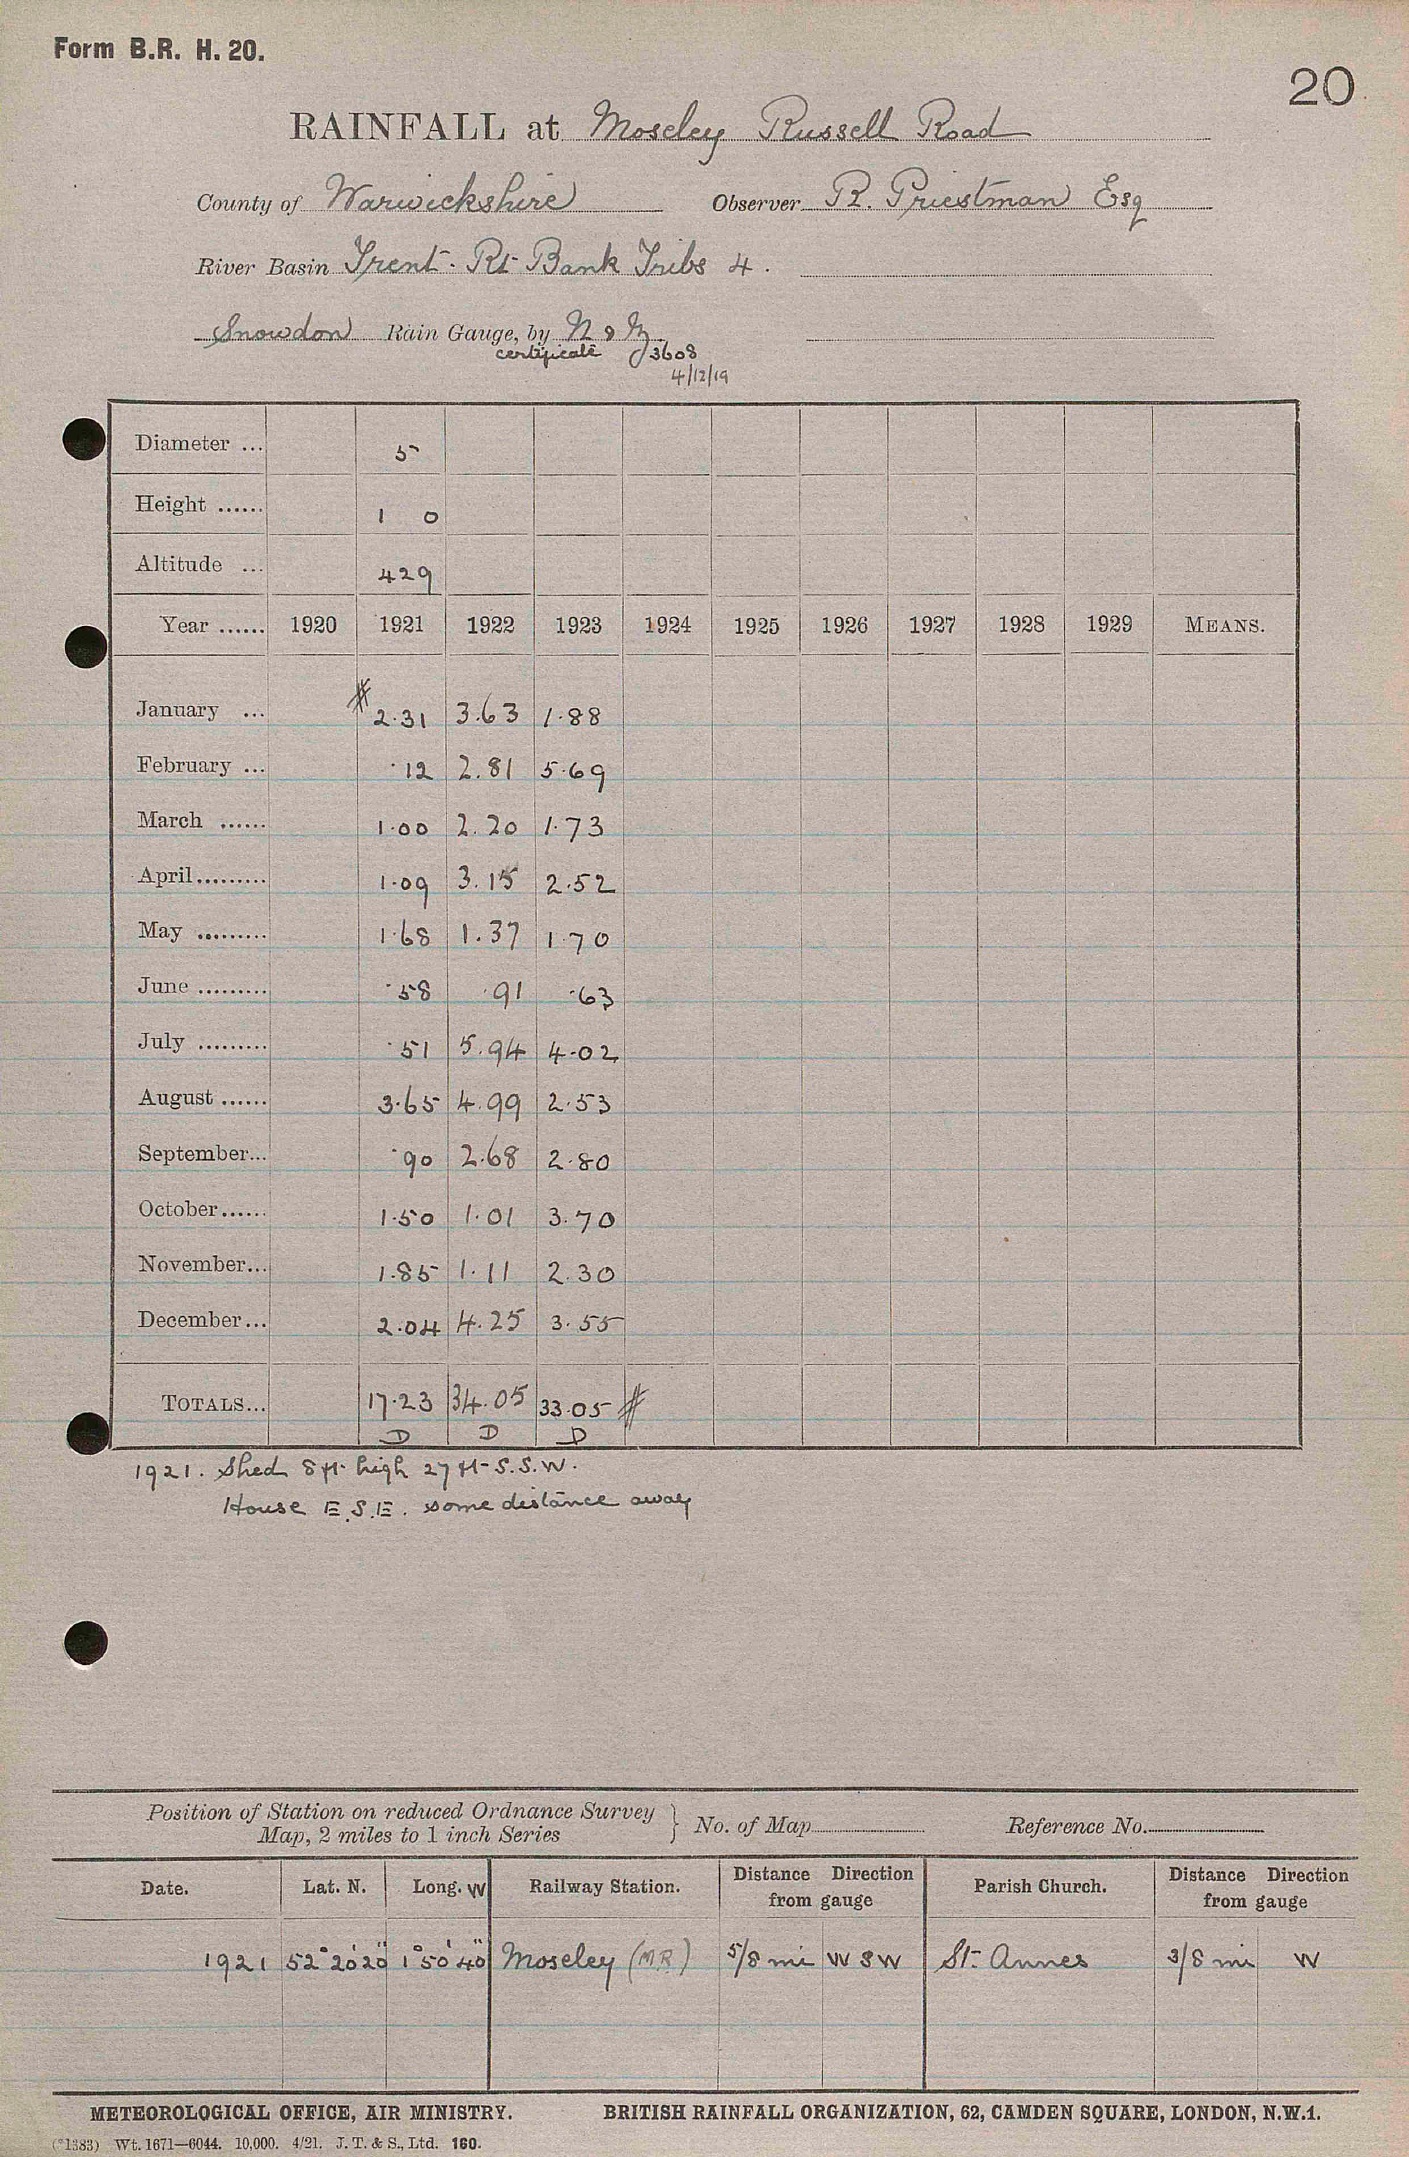 Form B.R. H. 20.
20
RAINFALL at Moseley Russell Road
County of Warwickshire Observer R. Priestman Esq
River Basin Trent. Rt Bank Tribs 4.
Snowdon Rain Gauge, by N & Z
certificate 3608
4/12/19
Diameter ... 5
Height ...... 1 0
Altitude ... 429
Year ...... 1920 1921 1922 1923 1924 1925 1926 1927 1928 1929 MEANS.
January ... # 2.31 3.63 1.88
February ... .12 2.81 5.69
March ...... 1.00 2.20 1.73
April......... 1.09 3.15 2.52
May ......... 1.68 1.37 1.70
June ......... .58 .91 .63
July ......... .51 5.94 4.02
August ...... 3.65 4.99 2.53
September... .90 2.68 2.80
October...... 1.50 1.01 3.70
November... 1.85 1.11 2.30
December... 2.04 4.25 3.55
TOTALS... 17.23 34.05 33.05 #
D D D
1921. Shed 8 ft high 27 ft S.S.W.
House E.S.E. some distance away
Position of Station on reduced Ordnance Survey
Map, 2 miles to 1 inch Series } No. of Map Reference No.
Date. Lat. N. Long. W Railway Station. Distance Direction from gauge Parish Church. Distance Direction from gauge
1921 52° 20' 20" 1° 50' 40" Moseley (M.R.) 5/8 mi W S W St. Annes 3/8 mi W
METEOROLOGICAL OFFICE, AIR MINISTRY. BRITISH RAINFALL ORGANIZATION, 62, CAMDEN SQUARE, LONDON, N.W.1.
(*1383) Wt. 1671—6044. 10,000. 4/21. J. T. & S., Ltd. 160.